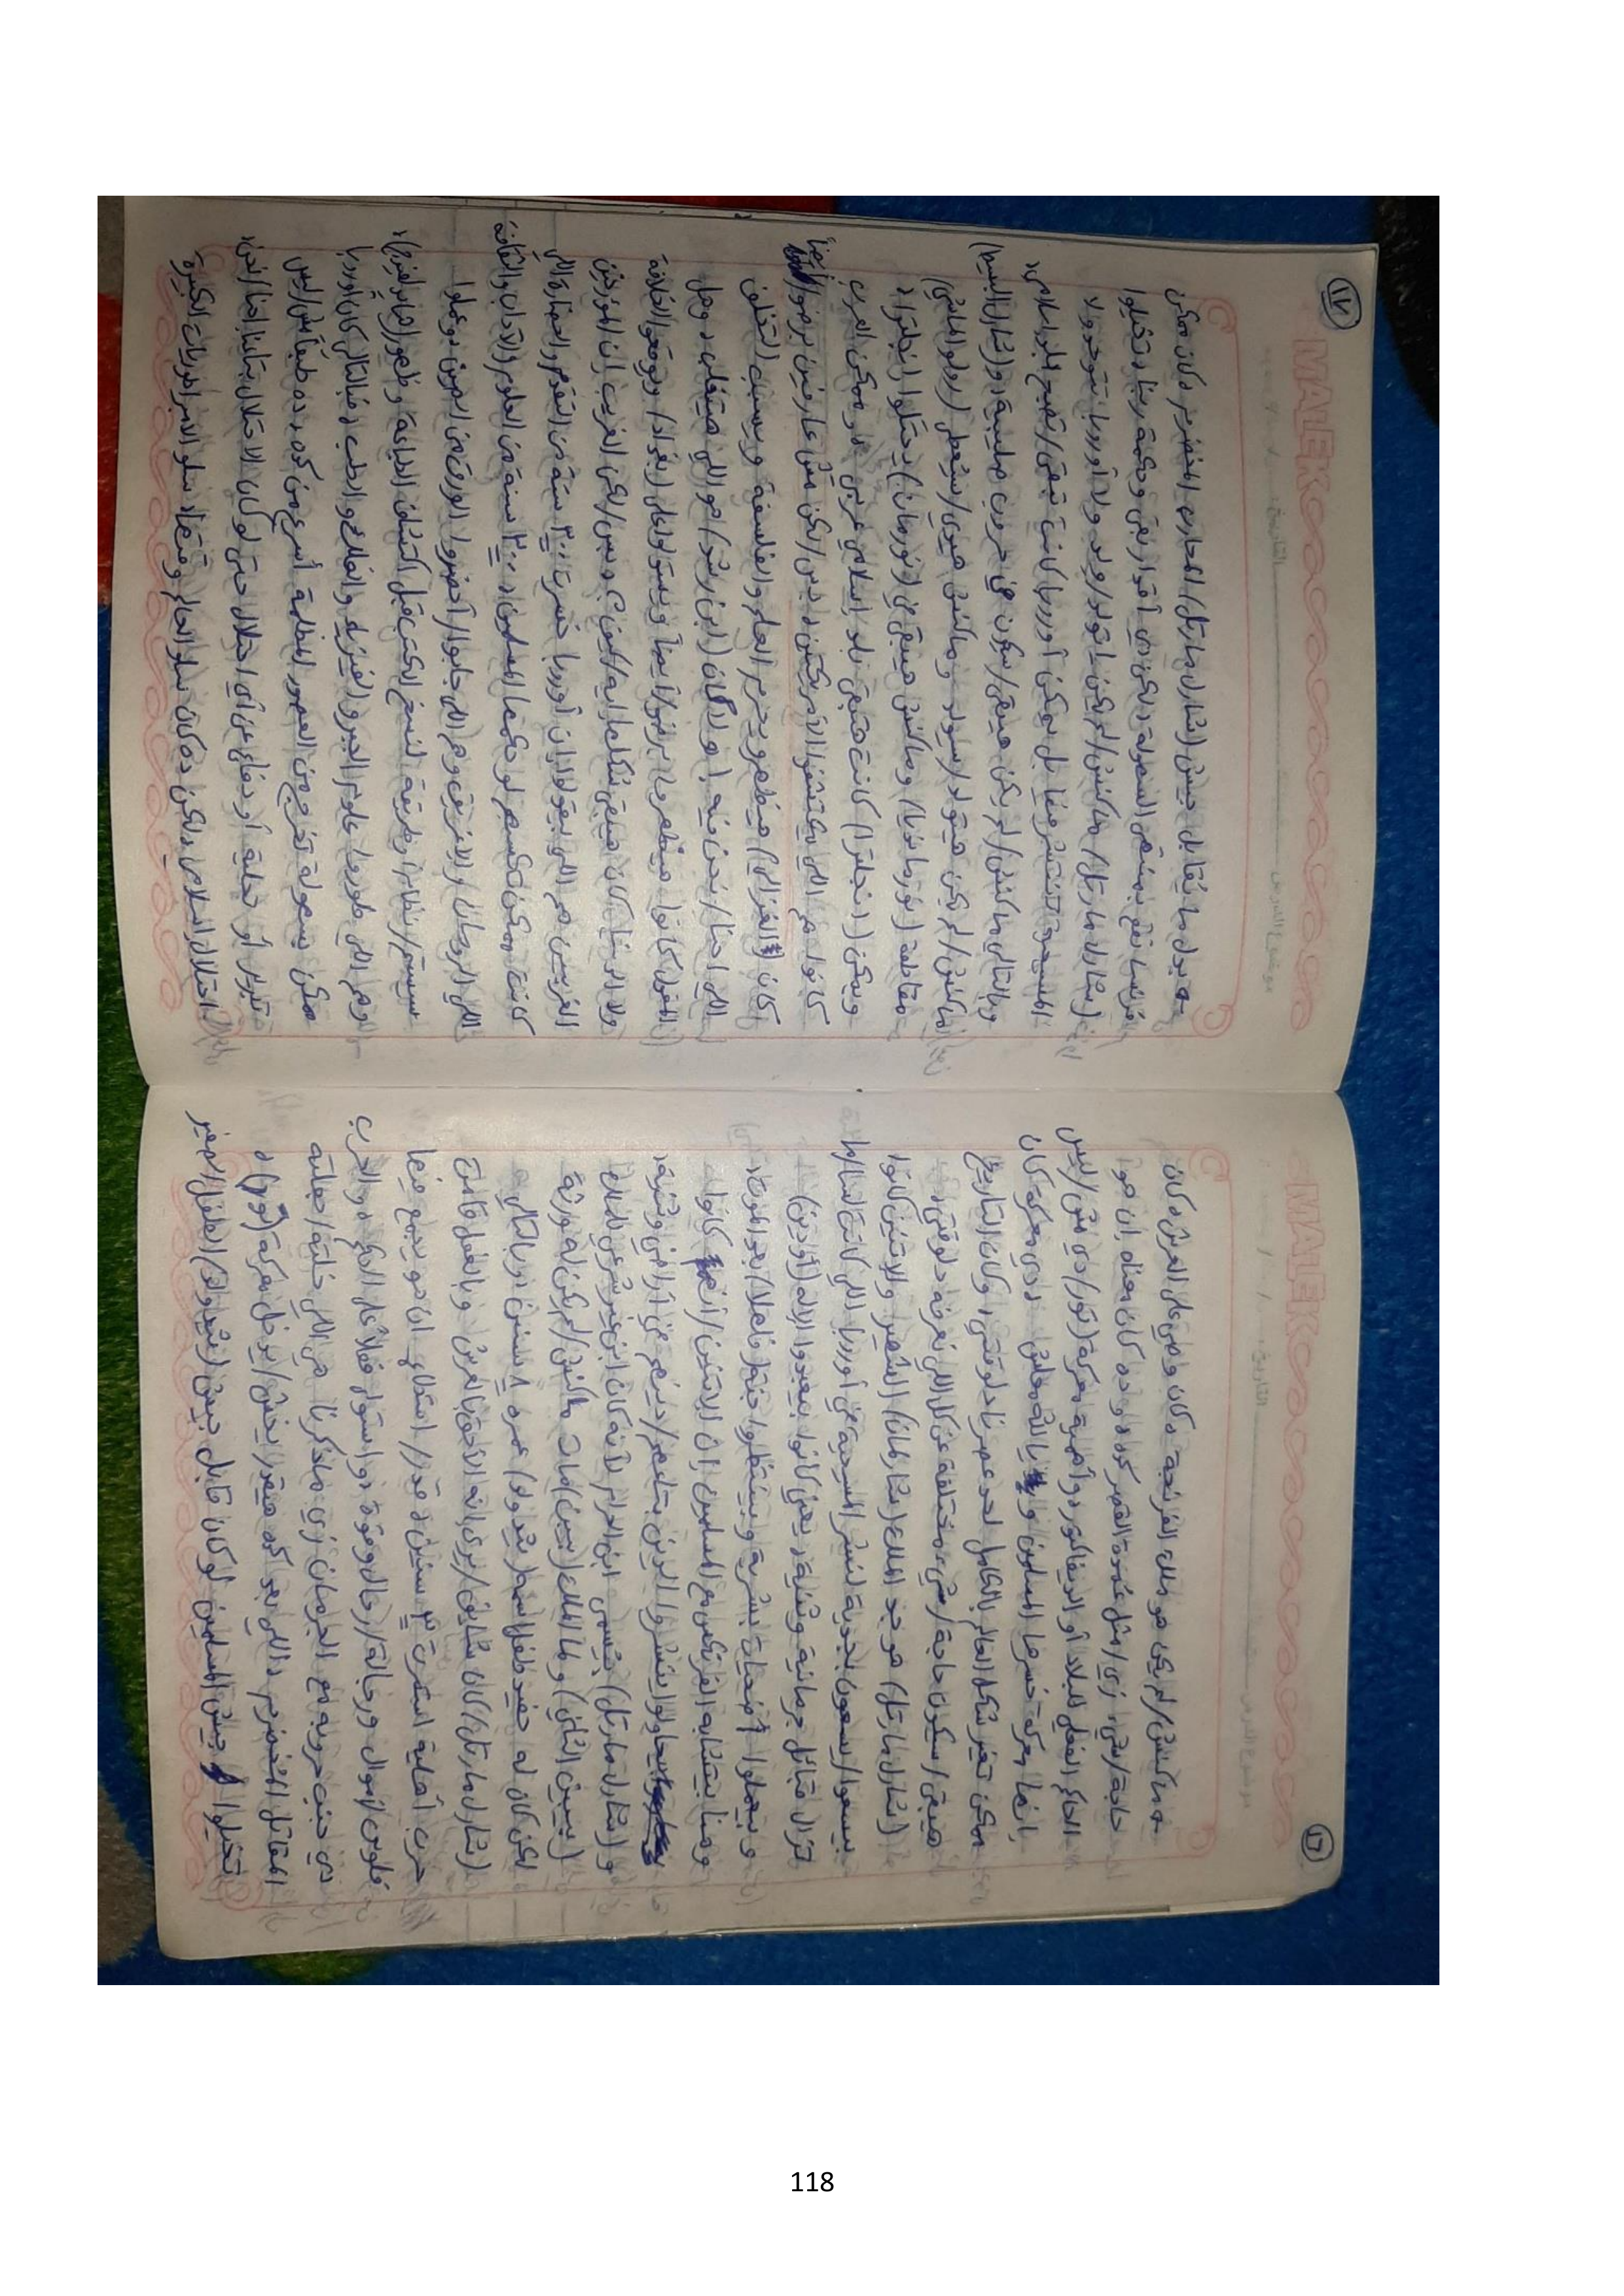 MALEK
التاريخ:
موضوع الدرس
١٦
← ماكنش/لم يكن هو ملك الفرنجة، كان وصي على العرش، كان
حاجة/شيء زي/مثل عمدة القصر كده، وده كان معناه إن هو
الحاكم الفعلي للبلاد أو الديفاكتور، وأهمية معركة (تور) دي مش/ليس
إنها معركة خسرها المسلمين وبالتالي معلش، دي معركة كان
ممكن تغير شكل العالم بالكامل لحد عصرنا دلوقتي، وكان التاريخ
هيبقى/سيكون حاجة/شيء مختلفة عن كل اللي نعرفه دلوقتي،
(شارل مارتل) هو جد الملك (شارلمان) الشهير والاتنين كانوا
بيسعوا/يسعون بجدية لنشر المسيحية في أوروبا اللي كانت لسا/لا
تزال قبائل جرمانية وثنية، يعني كانوا بيعبدوا الإله (أودين)
وبيعملوا أضحيات بشرية وبيستنوا جنة (فلهالا) بعد الموت،
وهنا بيتشابه الفرنكيين مع المسلمين إن الاتنين/ كانوا
بيحاولوا ينشروا الدين بتاعهم/دينهم في أراضي وثنية،
و(شارل مارتل) بيسمى ابن الحرام لأنه كان ابن غير شرعي للملك
(بيبين الثاني) ولما الملك (بيبين) مات ماكنش/لم يكن له ورثة
لكن كان له حفيد طفل اسمه (ثيدولد) عمره ٨ سنين، وبالتالي
(شارل مارتل) كان شايف/يرى إنه الأحق بالعرش وبالفعل قامت
حرب أهلية استمرت ٣ سنين، قدر/استطاع إن هو يجمع فيها
فلوس/أموال ورجالة/رجال وقوة واستولى فعلاً على الحكم، والحرب
دي جنب حروبه مع الجرمان زي ماذكرنا هي اللي خلته/جعلته
المقاتل المخضرم، اللي بعد كده هيقدر يخش/يدخل معركة (تور)،
تخيلوا جيش المسلمين لو كان قابل جيش (ثيدولد) الطفل الصغير
MALEK
التاريخ:
موضوع الدرس
١٧
← بدل ما يقابل جيش (شارل مارتل) المحارب المخضرم، كان ممكن
فرنسا تقع بمنتهى السهولة، لكن دي أقدار بقى وحكمة ربنا، تخيلوا
(شارل مارتل) ماكنش/لم يكن اتولد/ولد ولا أوروبا بتتوحد ولا
المسيحية تنتشر فيها بل يمكن أوروبا كانت تبقى/تصبح بلد إسلامي،
وبالتالي ماكنش/لم يكن هيبقى/سيكون في حروب صليبية، و(شارل البسيط)
ماكنش/لم يكن هيتولد/سيولد وماكنش هيدي/سيعطي (رولو الماشي)
مقاطعة (نورماندي) وماكنش هيبقى في (نورمان) يحتلوا إنجلترا،
ويمكن (إنجلترا) كانت هتبقى بلد إسلامي عربي، وممكن العرب
كانوا هم اللي يكتشفوا الأمريكتين، بس/لكن مش عارفين برضو/أيضاً
كان (الغزالي) هيظهر ويحرم العلم والفلسفة ويسبب التخلف
اللي احنا/نحن فيه، ولا كان (ابن رشد) هو اللي هيتغلب، وهل
المغول كانوا هيظهروا برضو/أيضاً ويستولوا على (بغداد) ويوقعوا الخلافة
ولا الدنيا كان هيبقى شكلها إيه/كيف؟، بس/لكن الغريب إن المؤرخين
الغربيين هم اللي بيقولوا إن أوروبا خسرت ٣٠٠ سنة من التقدم والحضارة اللي
كانت ممكن تكسبهم لو حكمها المسلمون، ٣٠٠ سنة من العلوم والآداب والثقافة
اللي الرومان والإغريق وهم اللي جابوا/أحضروا الورق من الصين، وعملوا
سيستم/نظام/طريقة لنسخ الكتب قبل اكتشاف الطباعة وظهور (جوتنبرج)،
وهم اللي طوروا علوم الجبر والفيزياء والفلك والطب، فبالتالي كان أوروبا
ممكن بسهولة تخرج من العصور المظلمة أسرع من كده، ده طبعاً مش/ليس
تبرير أو تحلية أو دفاع عن أي احتلال حتى لو كان الاحتلال بتاعنا احنا/نحن،
احتلال إسلامي، لكن ده كان سلو الحياة وقتها، سلو الإمبراطوريات الكبيرة
118